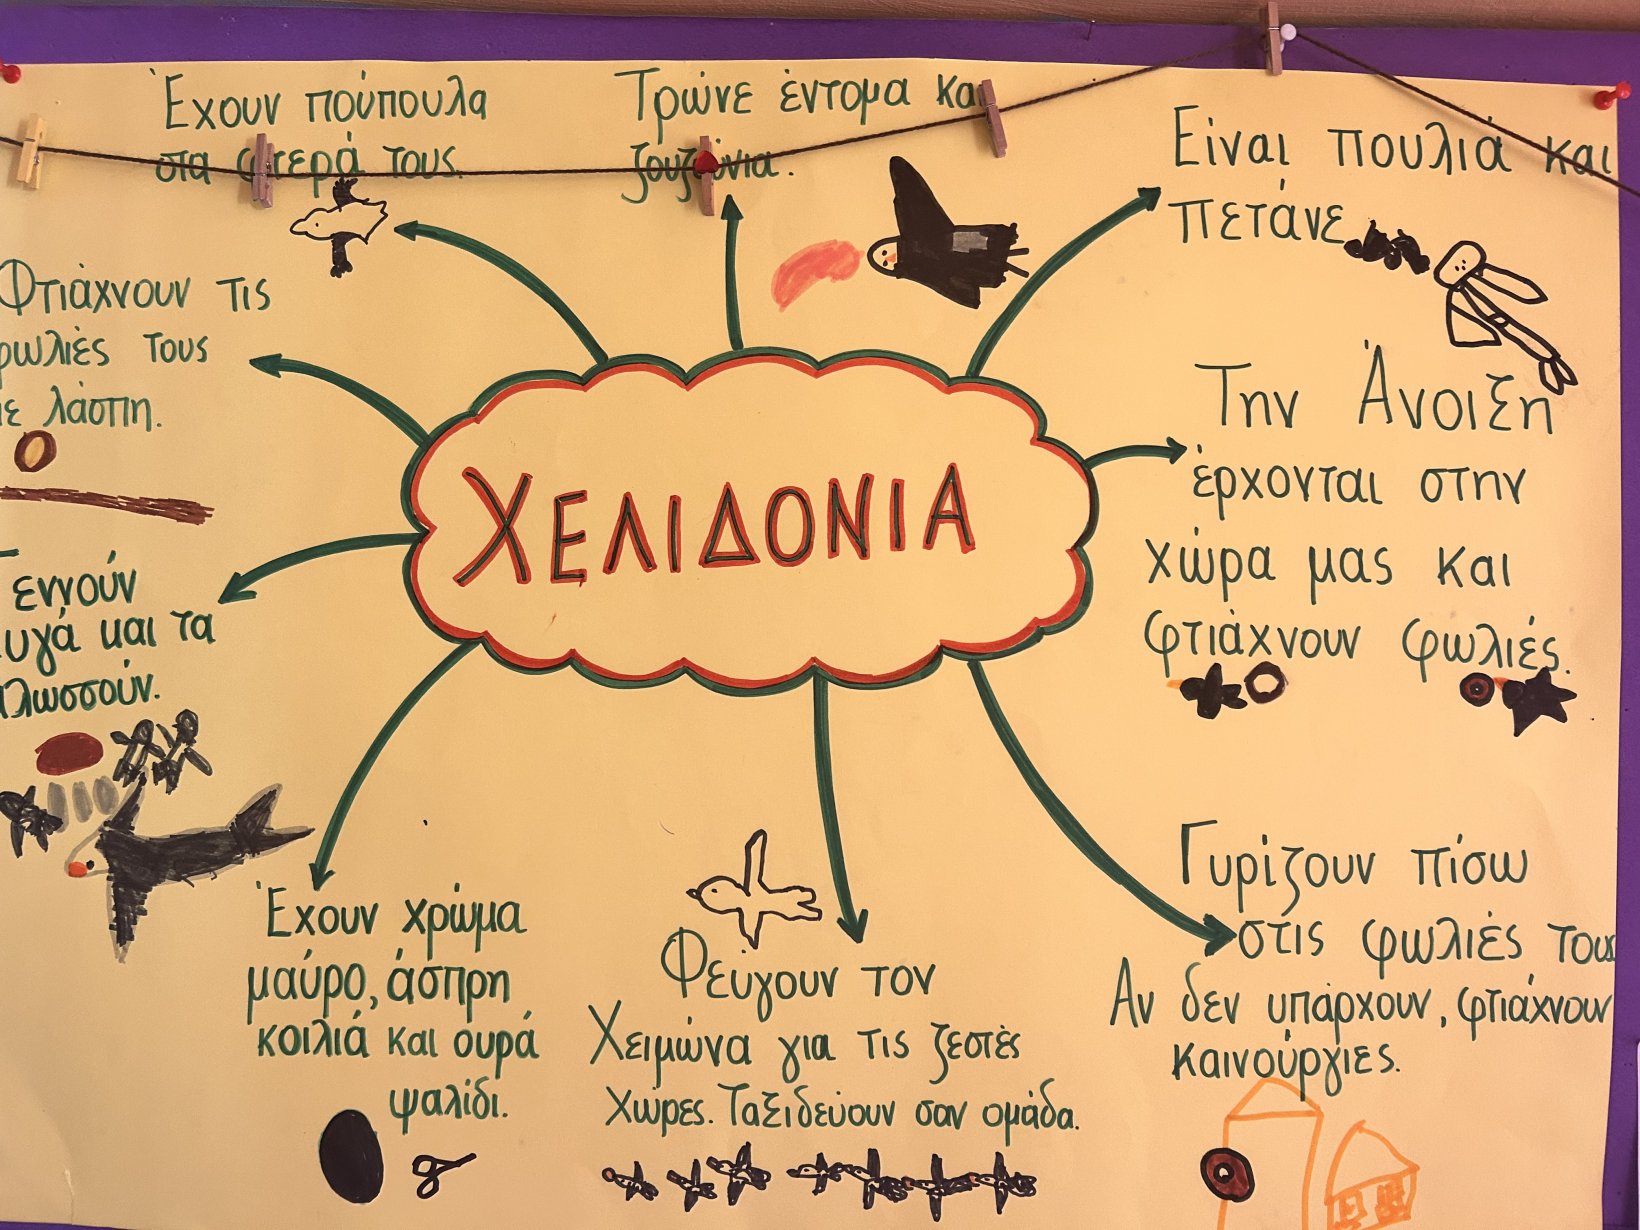 Έχουν πούπουλα
στα φτερά τους.
Τρώνε έντομα και
ζουζούνια.
Είναι πουλιά και
πετάνε
Φτιάχνουν τις
φωλιές τους
με λάσπη.
Την Άνοιξη
έρχονται στην
χώρα μας και
φτιάχνουν φωλιές.
ΧΕΛΙΔΟΝΙΑ
Γεννούν
αυγά και τα
κλωσσούν.
Έχουν χρώμα
μαύρο, άσπρη
κοιλιά και ουρά
ψαλίδι.
Φεύγουν τον
Χειμώνα για τις ζεστές
χώρες. Ταξιδεύουν σαν ομάδα.
Γυρίζουν πίσω
στις φωλιές τους
Αν δεν υπάρχουν, φτιάχνουν
καινούργιες.